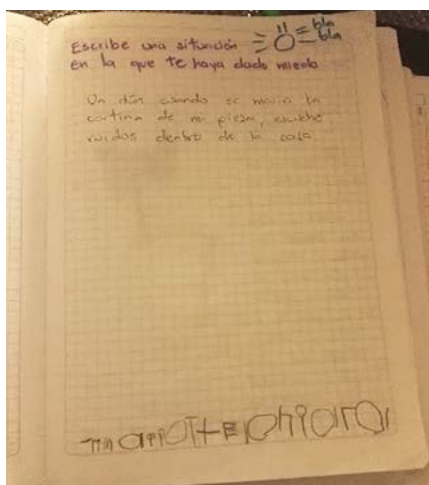 Escribe una situación
bla
bla
en la que te haya dado miedo
Un día cuando se movio la
cortina de mi pieza, escuché
ruidos dentro de la casa.